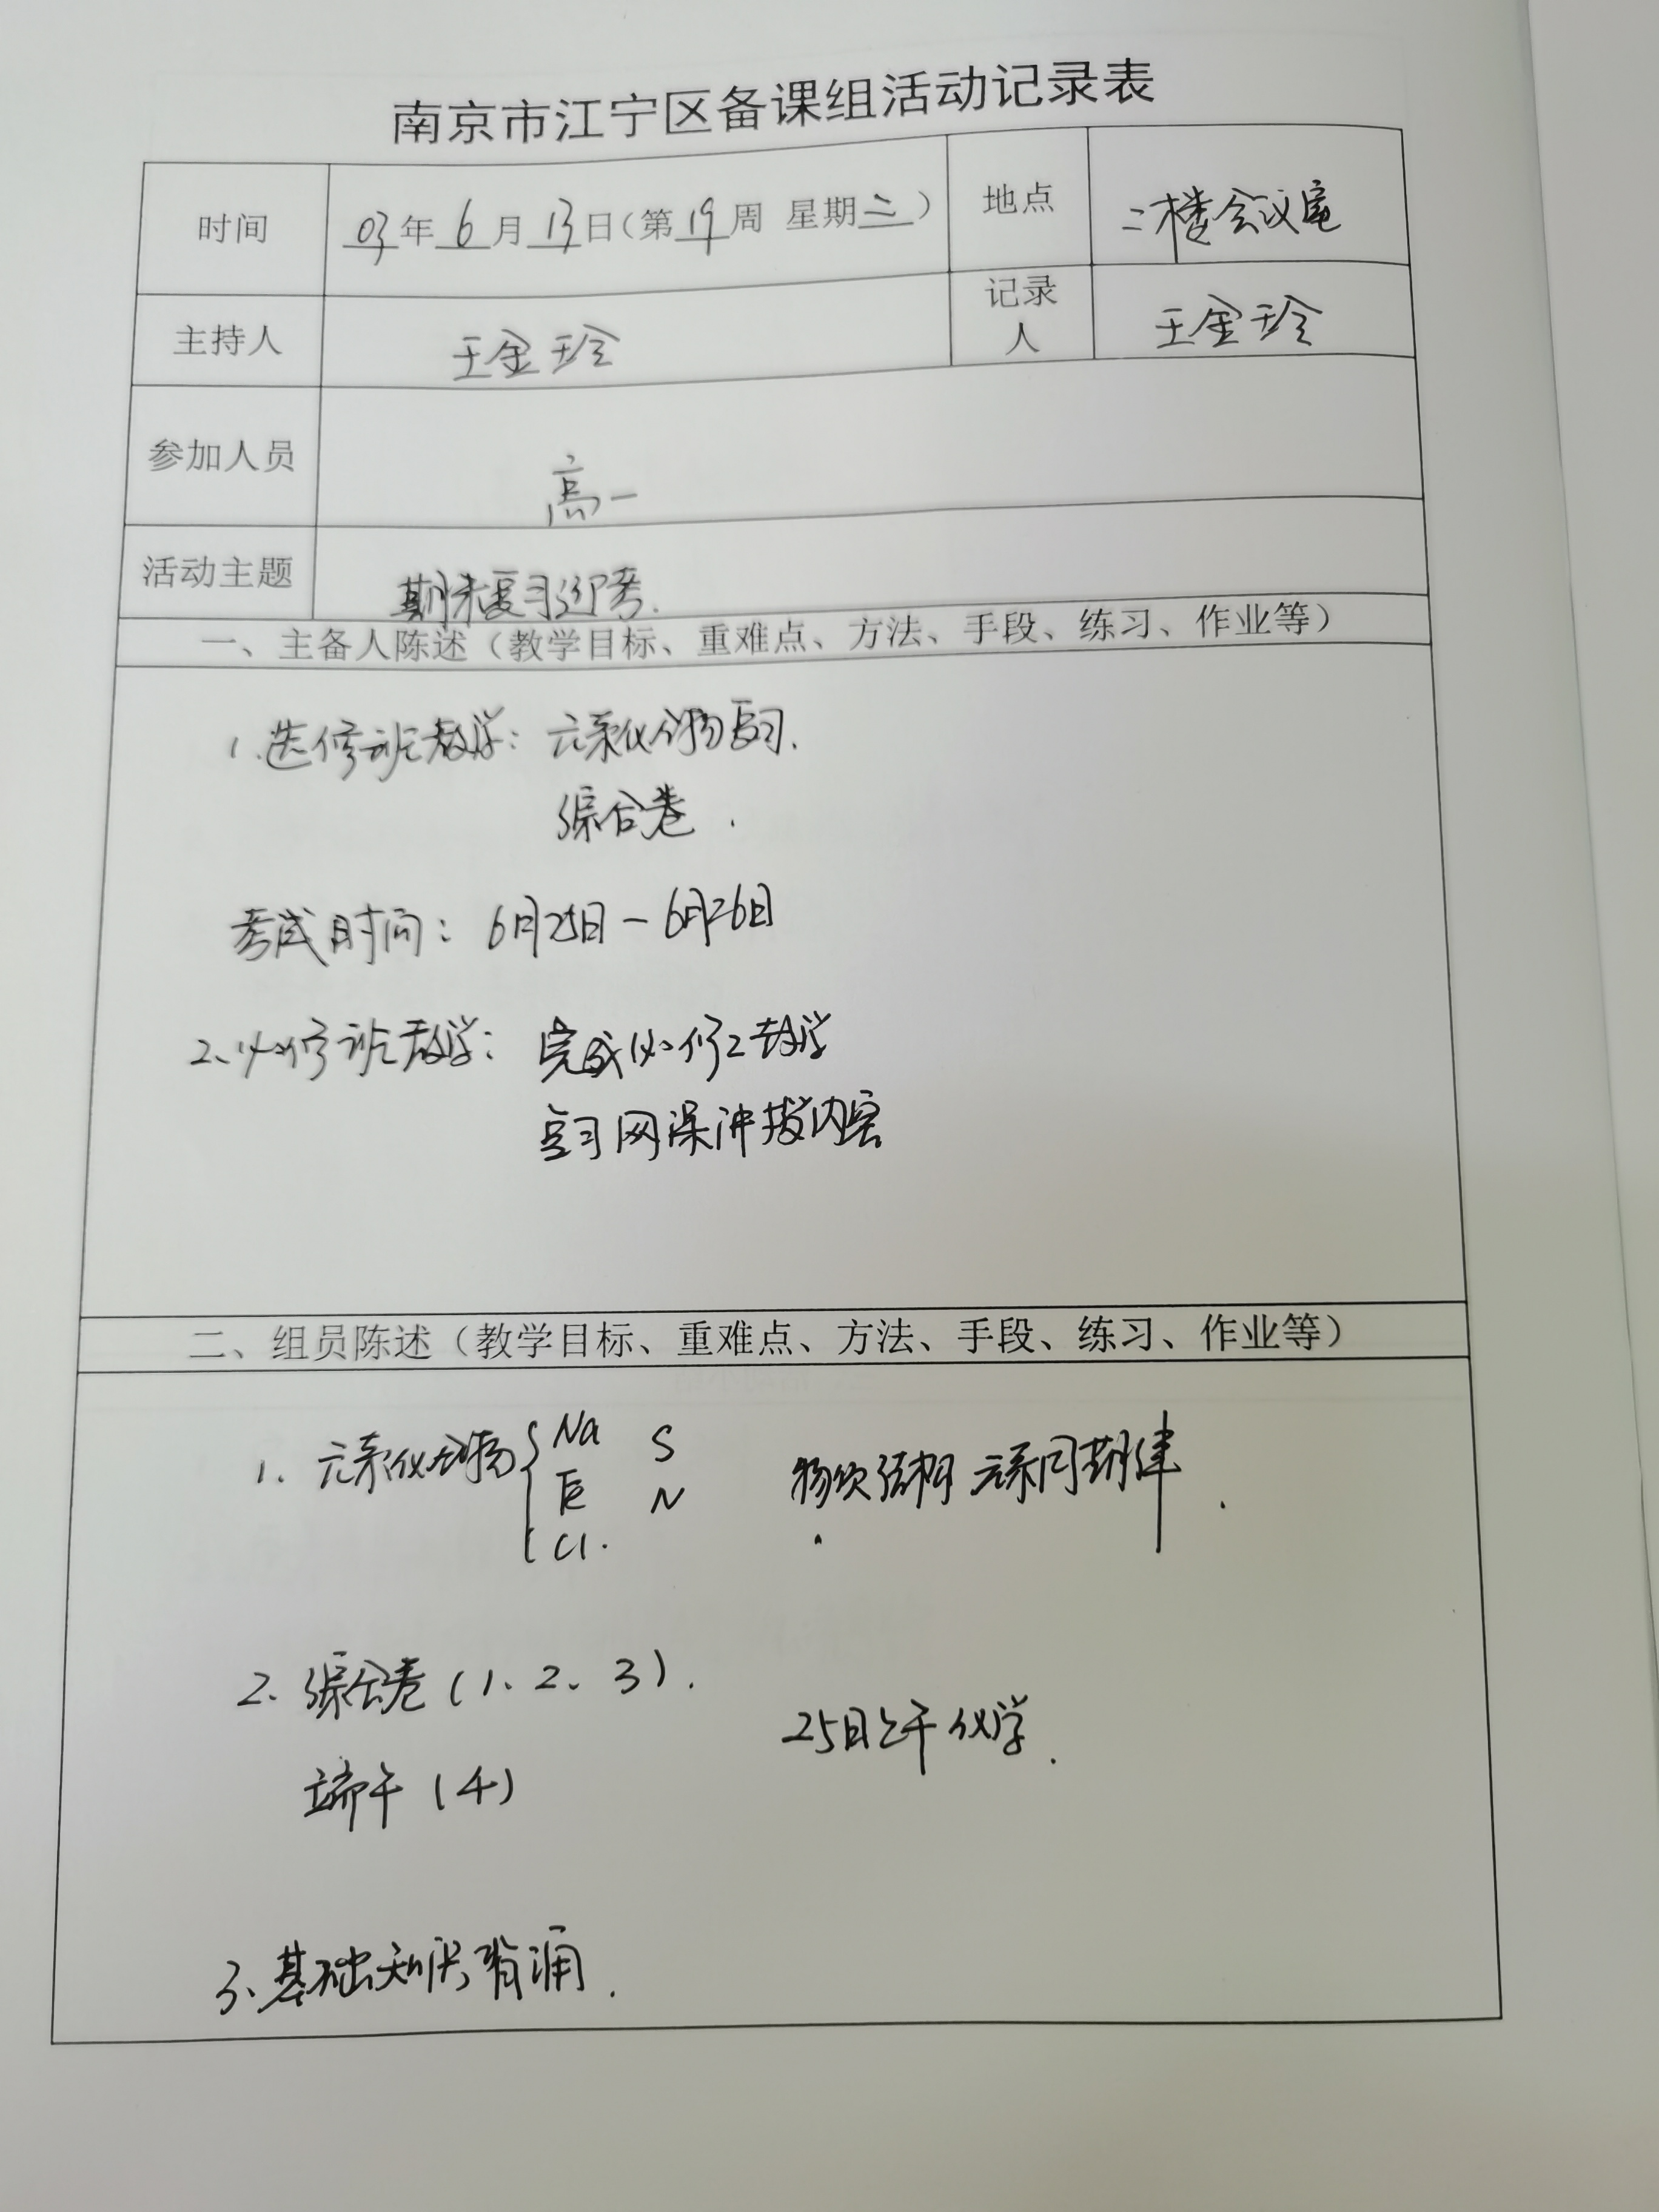 南京市江宁区备课组活动记录表
时间 03年6月13日(第19周 星期二) 地点 二楼会议室
主持人 王金玲 记录人 王金玲
参加人员 高一
活动主题 期末复习迎考.
一、主备人陈述（教学目标、重难点、方法、手段、练习、作业等）
1.选修班教学: 元素化合物复习.
综合卷.
考试时间: 6月25日-6月26日
2、必修班教学: 完成必修2教学
复习网课讲授内容
二、组员陈述（教学目标、重难点、方法、手段、练习、作业等）
1. 元素化合物 { Na S 物质结构 元素周期律.
N
Cl.
2. 综合卷(1、2、3).
25日上午化学.
端午(4)
3、基础知识背诵.